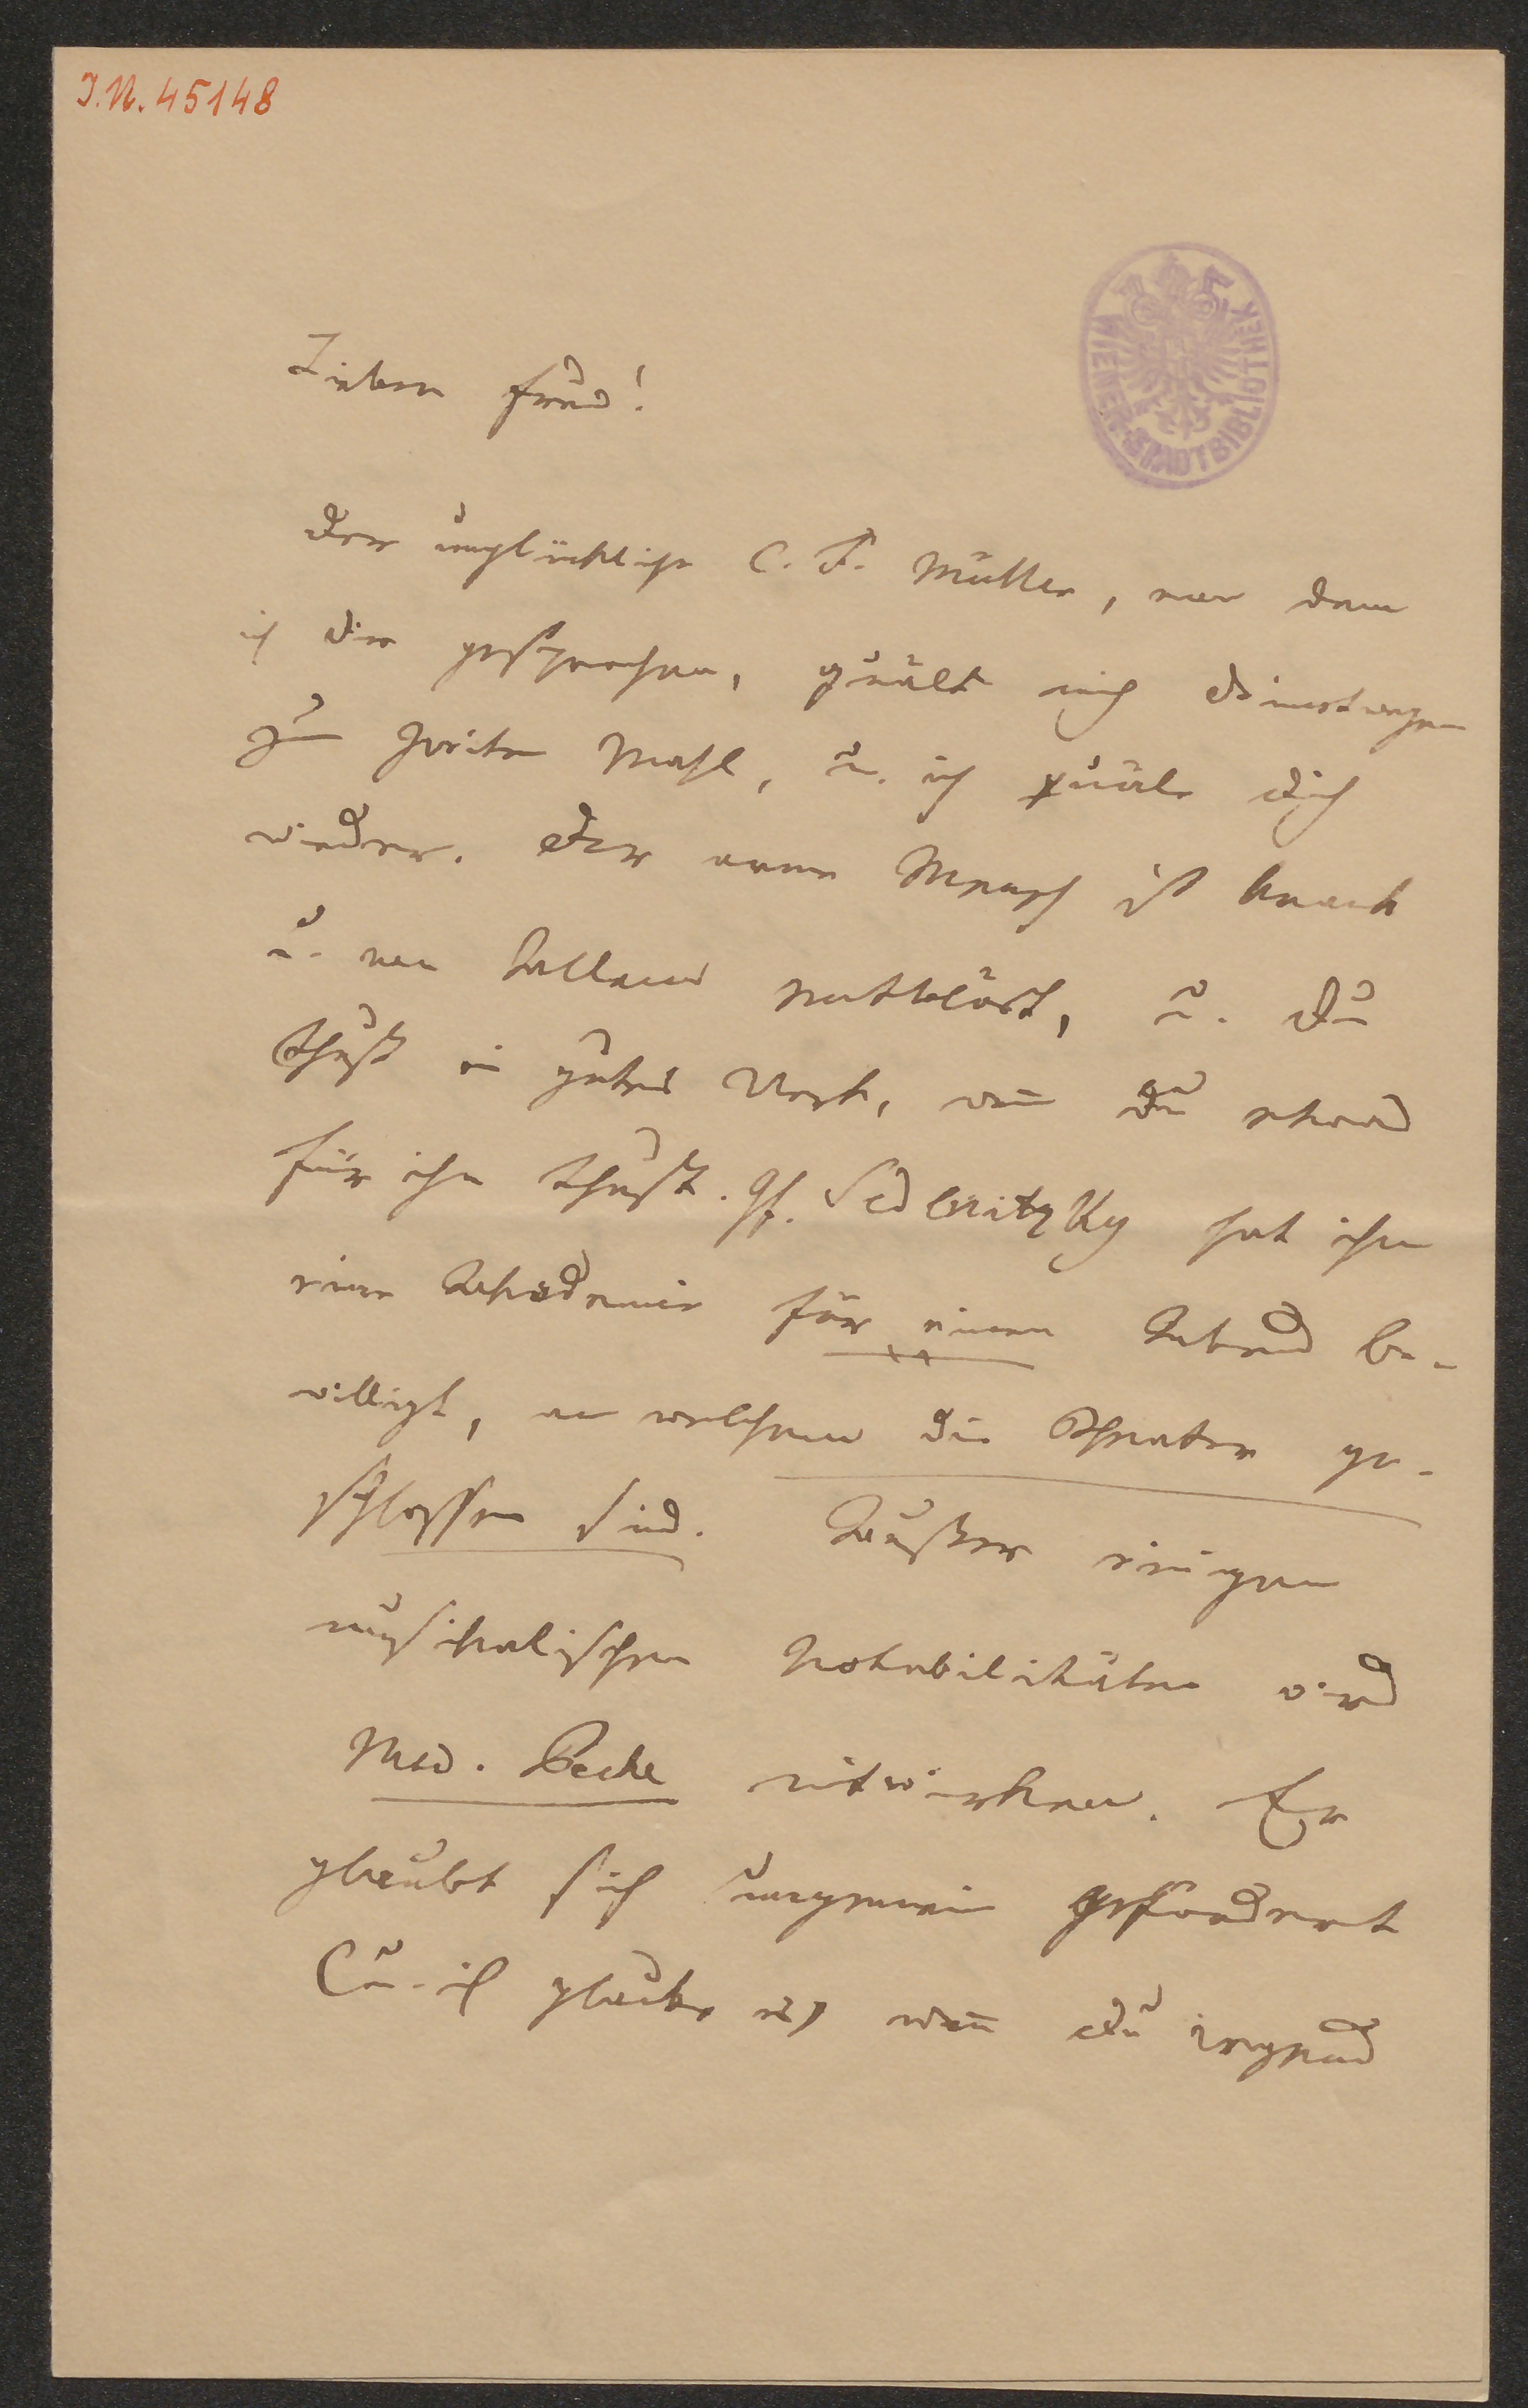 I.N. 45148
WIENER-STADTBIBLIOTHEK
Lieber Freund!
Der unglückliche C. F. Müller, von dem
ich dir gesprochen, quält mich deinetwegen
zum zweiten Mahl, u. ich quäle dich
wieder. Der arme Mensch ist krank
u. von Allem entblößt, u. du
thust ein gutes Werk, wenn du etwas
für ihn thust. Gf. Sedlnitzky hat ihm
eine Akademie für einen Abend be-
willigt, an welchem die Theater ge-
schlossen sind. Außer einigen
musikalischen Notabilitäten wird
Mad. Peche mitwirken. Er
glaubt sich ungemein gefördert
(u. ich glaube es) wenn du irgend